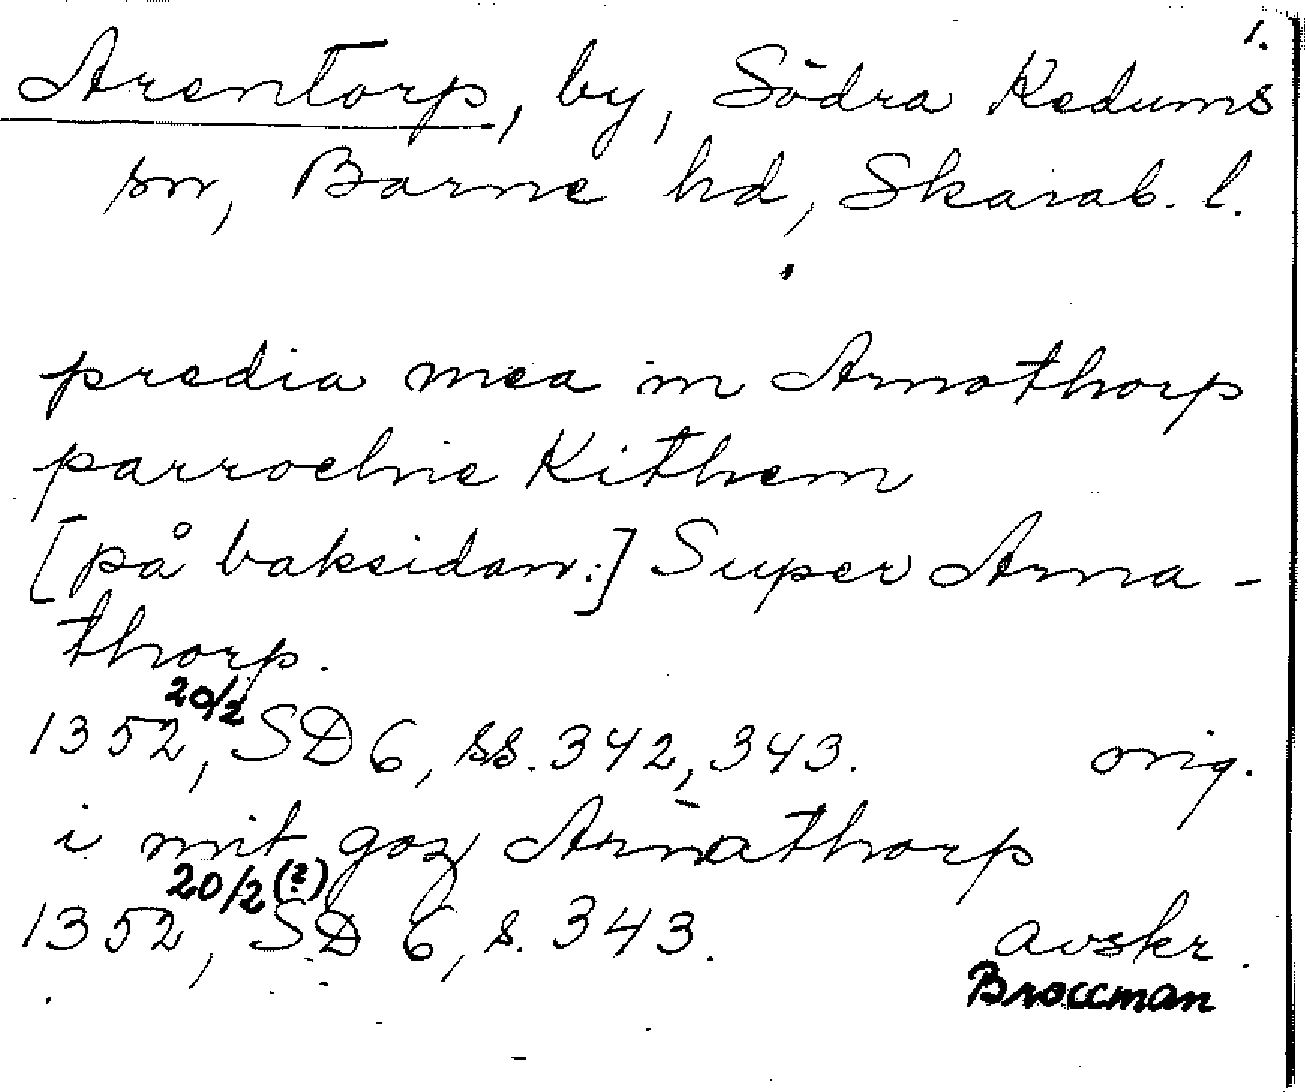 1.
Arentorp, by, Södra Kedums
sn, Barne hd, Skarab. l.
predia mea in Arnathorp
parrochie Kithem
[på baksidan:] Super Arna-
thorp.
20/2
1352, SD 6, ss. 342, 343. orig.
i mit goz Arnathorp
20/2 (?)
1352, SD 6, s. 343. avskr.
Broccman